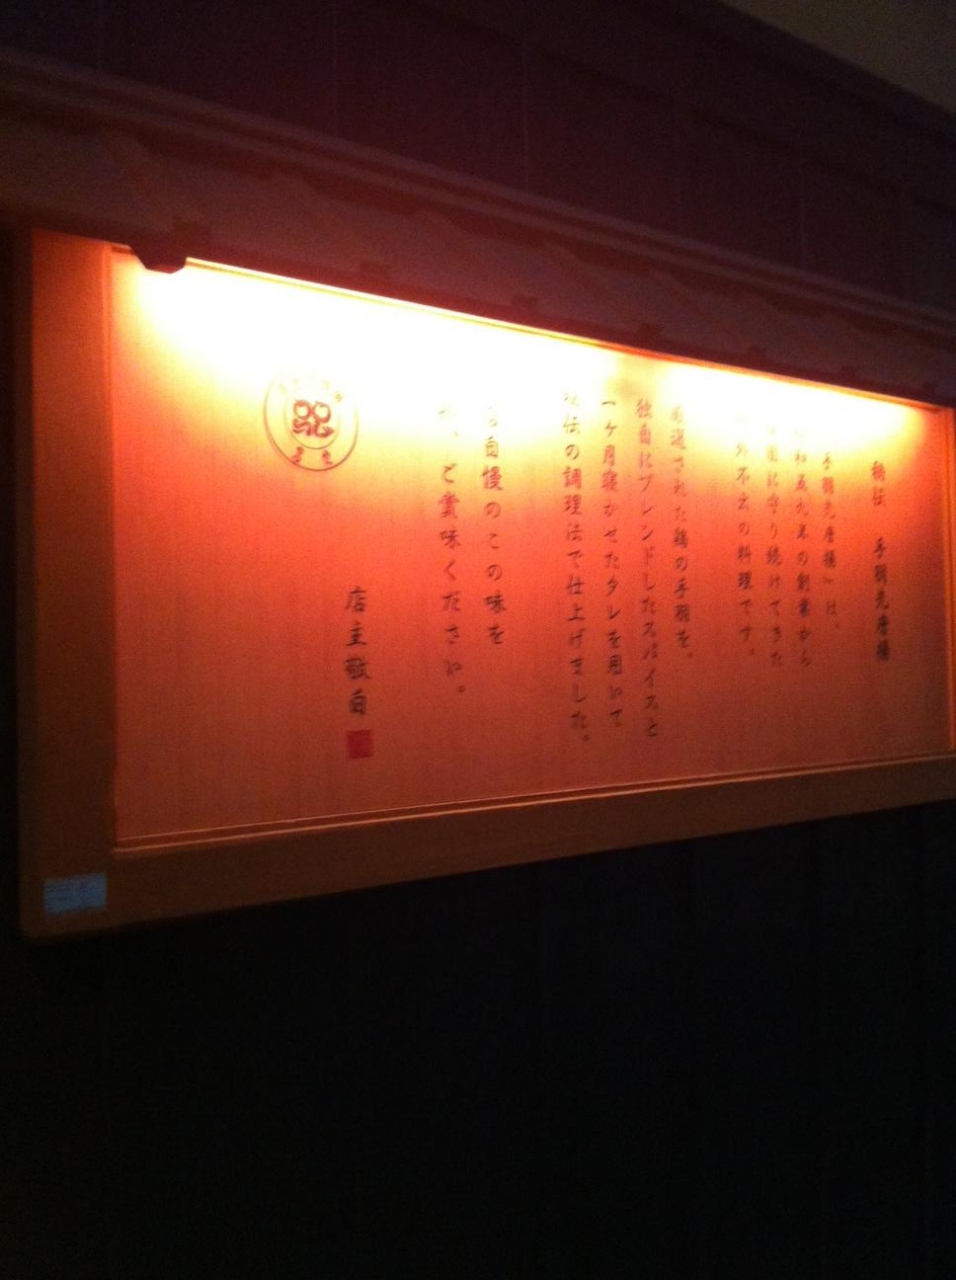 秘伝 手羽先唐揚
手羽先唐揚」は、
和五九年の創業から
に守り続けてきた
外不出の料理です。
選された鶏の手羽を、
独自にブレンドしたスパイスと
一ヶ月寝かせたタレを用いて
伝の調理法で仕上げました。
自慢のこの味を
、ご賞味ください。
店主敬白